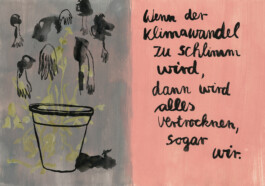 Wenn der
Klimawandel
zu schlimm
wird,
dann wird
alles
vertrocknen,
sogar
wir.